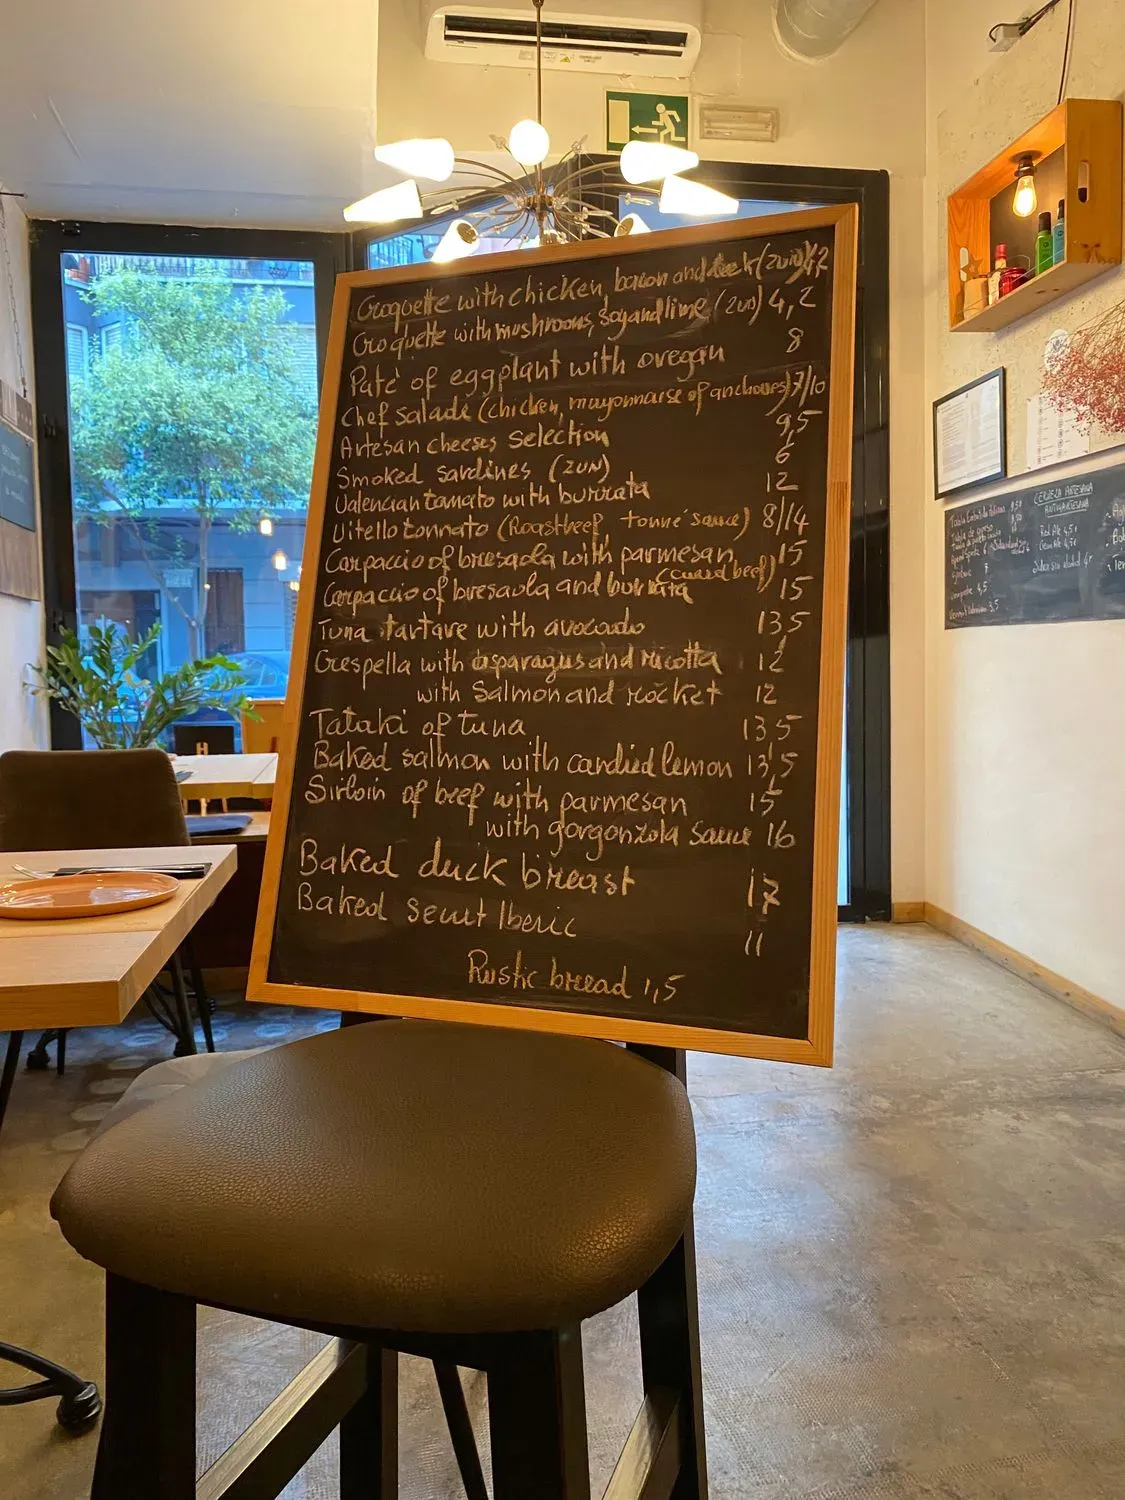 Croquette with chicken, bacon and leek (2UN) 4,2
Croquette with mushrooms, soy and lime (2UD) 4,2
Paté of eggplant with oregan 8
Chef salade (chicken, mayonnaise of anchoves) 7/10
Artesan cheeses selection 9,5
Smoked sardines (2UN) 6
Valencian tomato with burrata 12
Vitello tonnato (Roastbeef, tonné sauce) 8/14
Carpaccio of bresaola with parmesan 15
(cured beef)
Carpaccio of bresaola and burrata 15
Tuna tartare with avocado 13,5
Crespella with asparagus and ricotta 12
with Salmon and rocket 12
Tataki of tuna 13,5
Baked salmon with candied lemon 13,5
Sirloin of beef with parmesan 15
with gorgonzola sauce 16
Baked duck breast 17
Baked secret Iberic 11
Rustic bread 1,5
CERVEZA ARTESANA
Red Ale 4,5